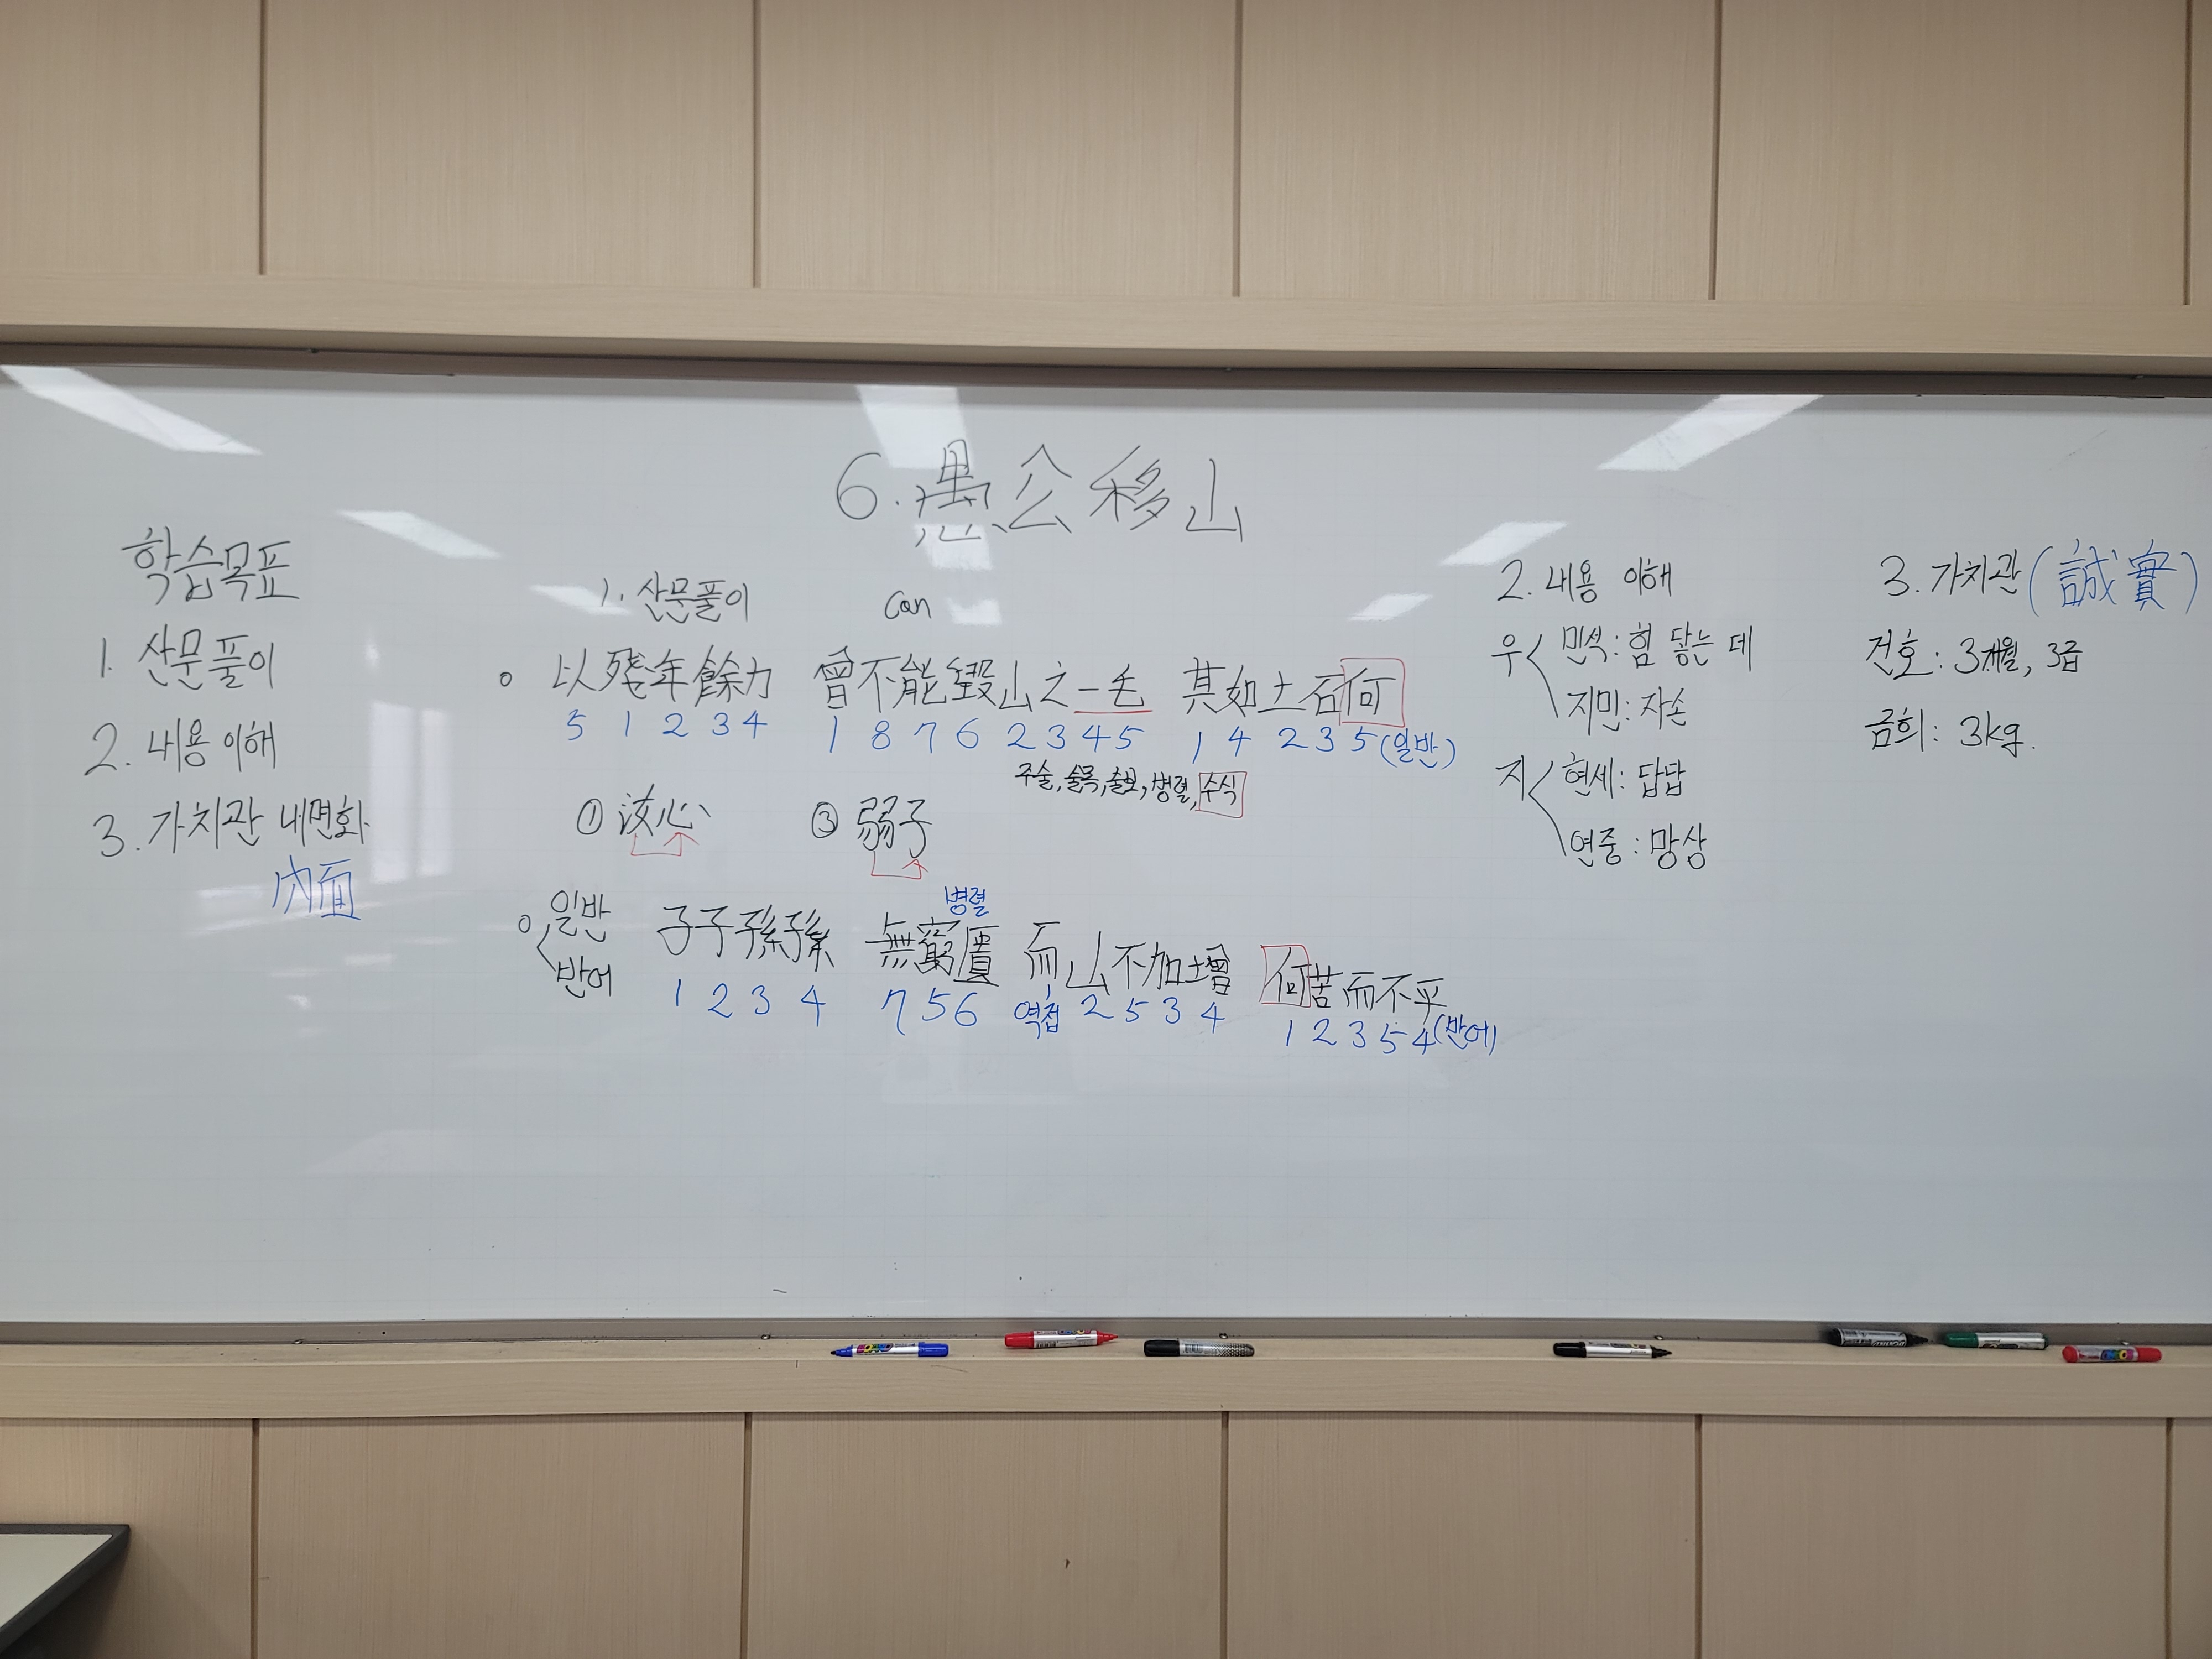 6. 愚公移山
학습목표
1. 산문풀이
2. 내용 이해
3. 가치관 내면화
內面
1. 산문풀이
can
○ 以殘年餘力 曾不能毀山之一毛 其如土石何
5 1 2 3 4 1 8 7 6 2 3 4 5 1 4 2 3 5 (일반)
주술, 술목, 술보, 병렬, 수식
① 汝心 ③ 弱子
병렬
○ 일반 子子孫孫 無窮匱 而山不加增 何苦而不平
반어
1 2 3 4 7 5 6 1 역접 2 5 3 4 1 2 3 5 4 (반어)
2. 내용 이해
우 민석: 힘 닿는 데
지민: 자손
지 현세: 답답
연중: 망상
3. 가치관 (誠實)
건호: 3개월, 3급
금희: 3kg.